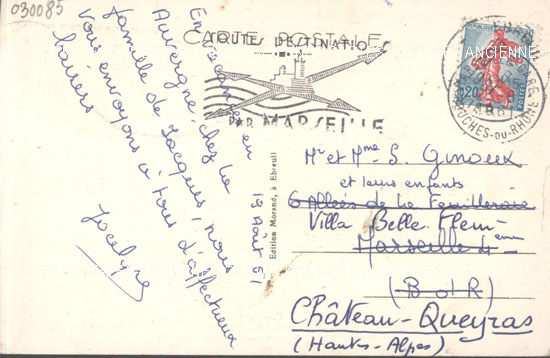 030085
CARTE POSTALE
TOUTES DESTINATIONS
PAR MARSEILLE
0,20
BOUCHES-DU-RHÔNE
En vacances en
Auvergne, chez la
famille de Jacques, nous
vous envoyons à tous d'affectueux
baisers
Jocelyne
19 Août 61
Edition Morand, à Ebreuil
Mr et Mme S. Ginoux
et leurs enfants
6 Allées de la Feuilleraie
Villa Belle Fleur
Marseille 4 eme
(B d R)
Château-Queyras
(Hautes-Alpes)